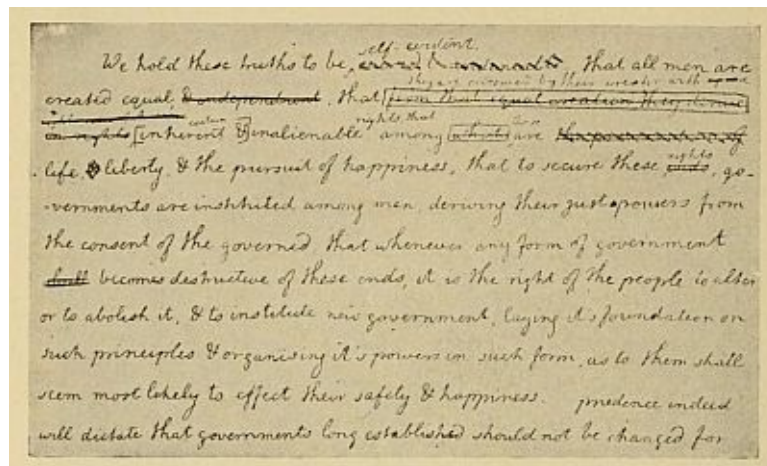 self-evident.
We hold these truths to be, that all men are
they are endowed by their creator with
created equal, & independent, that from that equal creation they derive
certain rights, that
in rights inherent & inalienable among which are
rights
life, & liberty, & the pursuit of happiness, that to secure these ends, go-
-vernments are instituted among men, deriving their just powers from
the consent of the governed, that whenever any form of government
shall becomes destructive of these ends, it is the right of the people to alter
or to abolish it, & to institute new government, laying it's foundation on
such principles & organising it's powers in such form, as to them shall
seem most likely to effect their safety & happiness. prudence indeed
will dictate that governments long established should not be changed for